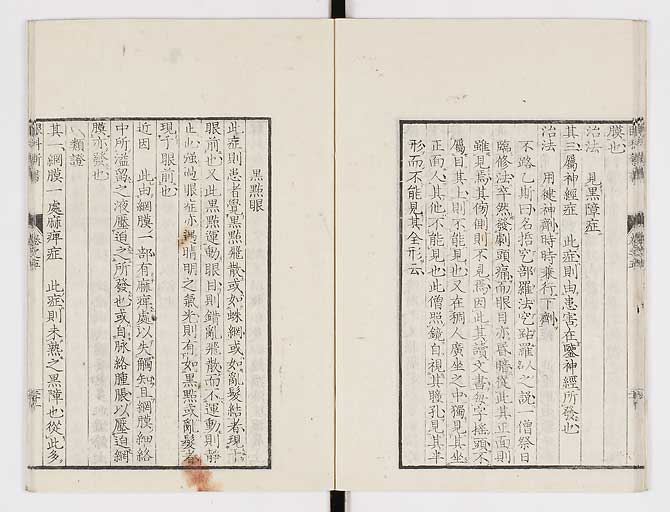 膜也
治法　見黒障症
其三屬神經症　此症則由患害在鑒神經所發也
治法　用健神劑時時兼行下劑
不路乙斯曰名指究部羅法究站羅以之說一僧祭日
臨修法卒然發劇頭痛而眼目亦昏瞻從此其正面則
雖見焉其傍側則不見焉因此其讀文書每字搖頭不
屬目其上則不能見也又在稠人廣坐之中獨見其坐
正面人其他不能見也此僧照鏡自視其瞳孔見其半
形而不能見其全形云
黒點眼
此症則患者覺黒點飛散或如蛛網或如亂髮結者現于
眼前也又此黒點運動眼目則錯亂飛散而不運動則靜
止也強過眼症亦遇晴明之氣光則有如黒點或亂髮者
現于眼前也
近因　此由網膜一部有麻痺處以失觸知且網膜細絡
中所溜留之液壓迫之所發也或自脉絡腫脹以壓迫網
膜亦發也
類證
其一網膜一處麻痺症　此症則未熟之黒障也從此多
眼科新書